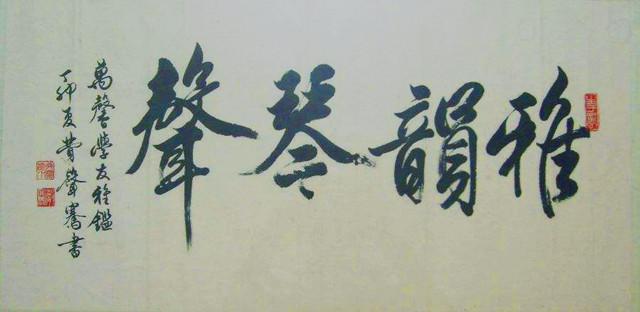 雅韻琴聲
萬馨學友雅鑑
丁卯夏費聲騫書